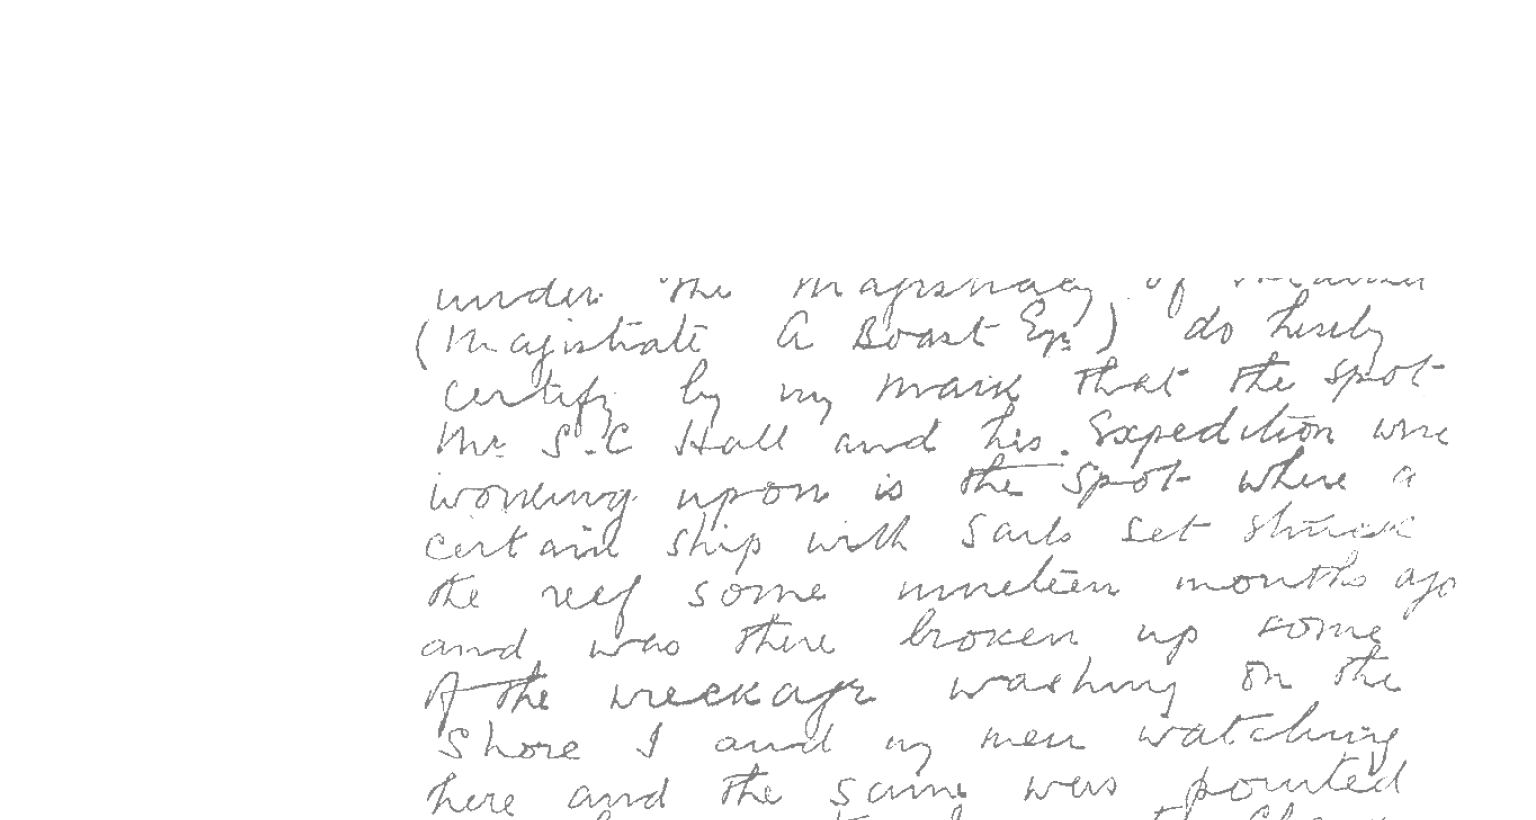 under the Magistracy of
(Magistrate A Boast Esqr) do hereby
certify by my mark that the spot
Mr S.C Hall and his Expedition were
working upon is the spot where a
certain ship with sails set struck
the reef some nineteen months ago
and was there broken up some
of the wreckage washing on the
Shore I and my men watching
here and the same was pointed